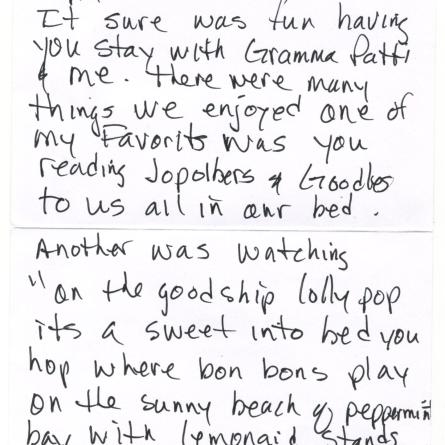 It sure was fun having
you stay with Gramma Patti
& me. there were many
things we enjoyed one of
my Favorits was you
reading Jopolbers & Goodles
to us all in our bed.
Another was watching
"on the goodship lolly pop
its a sweet into bed you
hop where bon bons play
on the sunny beach of peppermint
bay with lemonaid stands